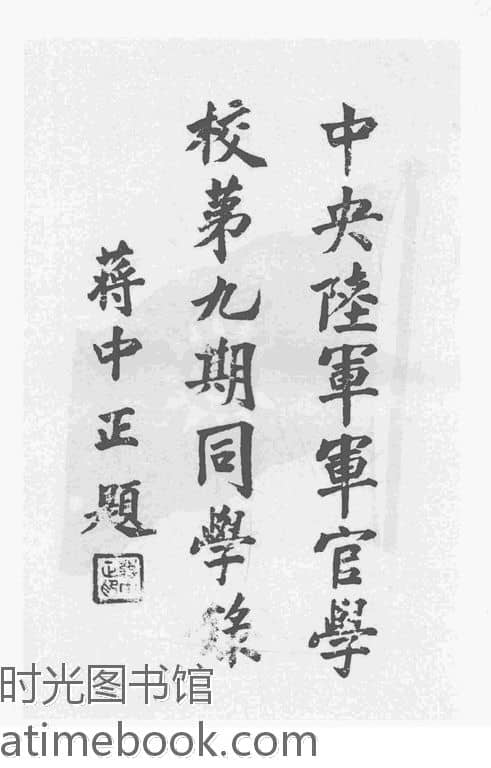 中央陸軍軍官學
校第九期同學錄
蔣中正題
时光图书馆
atimebook.com